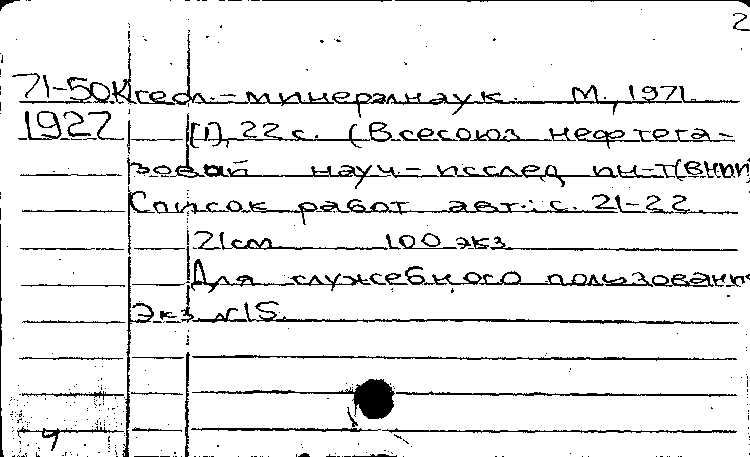 2
71-50К геол.-минерал наук. М., 1971.
1927 [1], 22 с. (Всесоюз нефтега-
зовый науч-исслед ин-т(ВНИИ
Список работ авт.: с. 21-22.
21см 100 экз
Для служебного пользования
Экз N15.
4